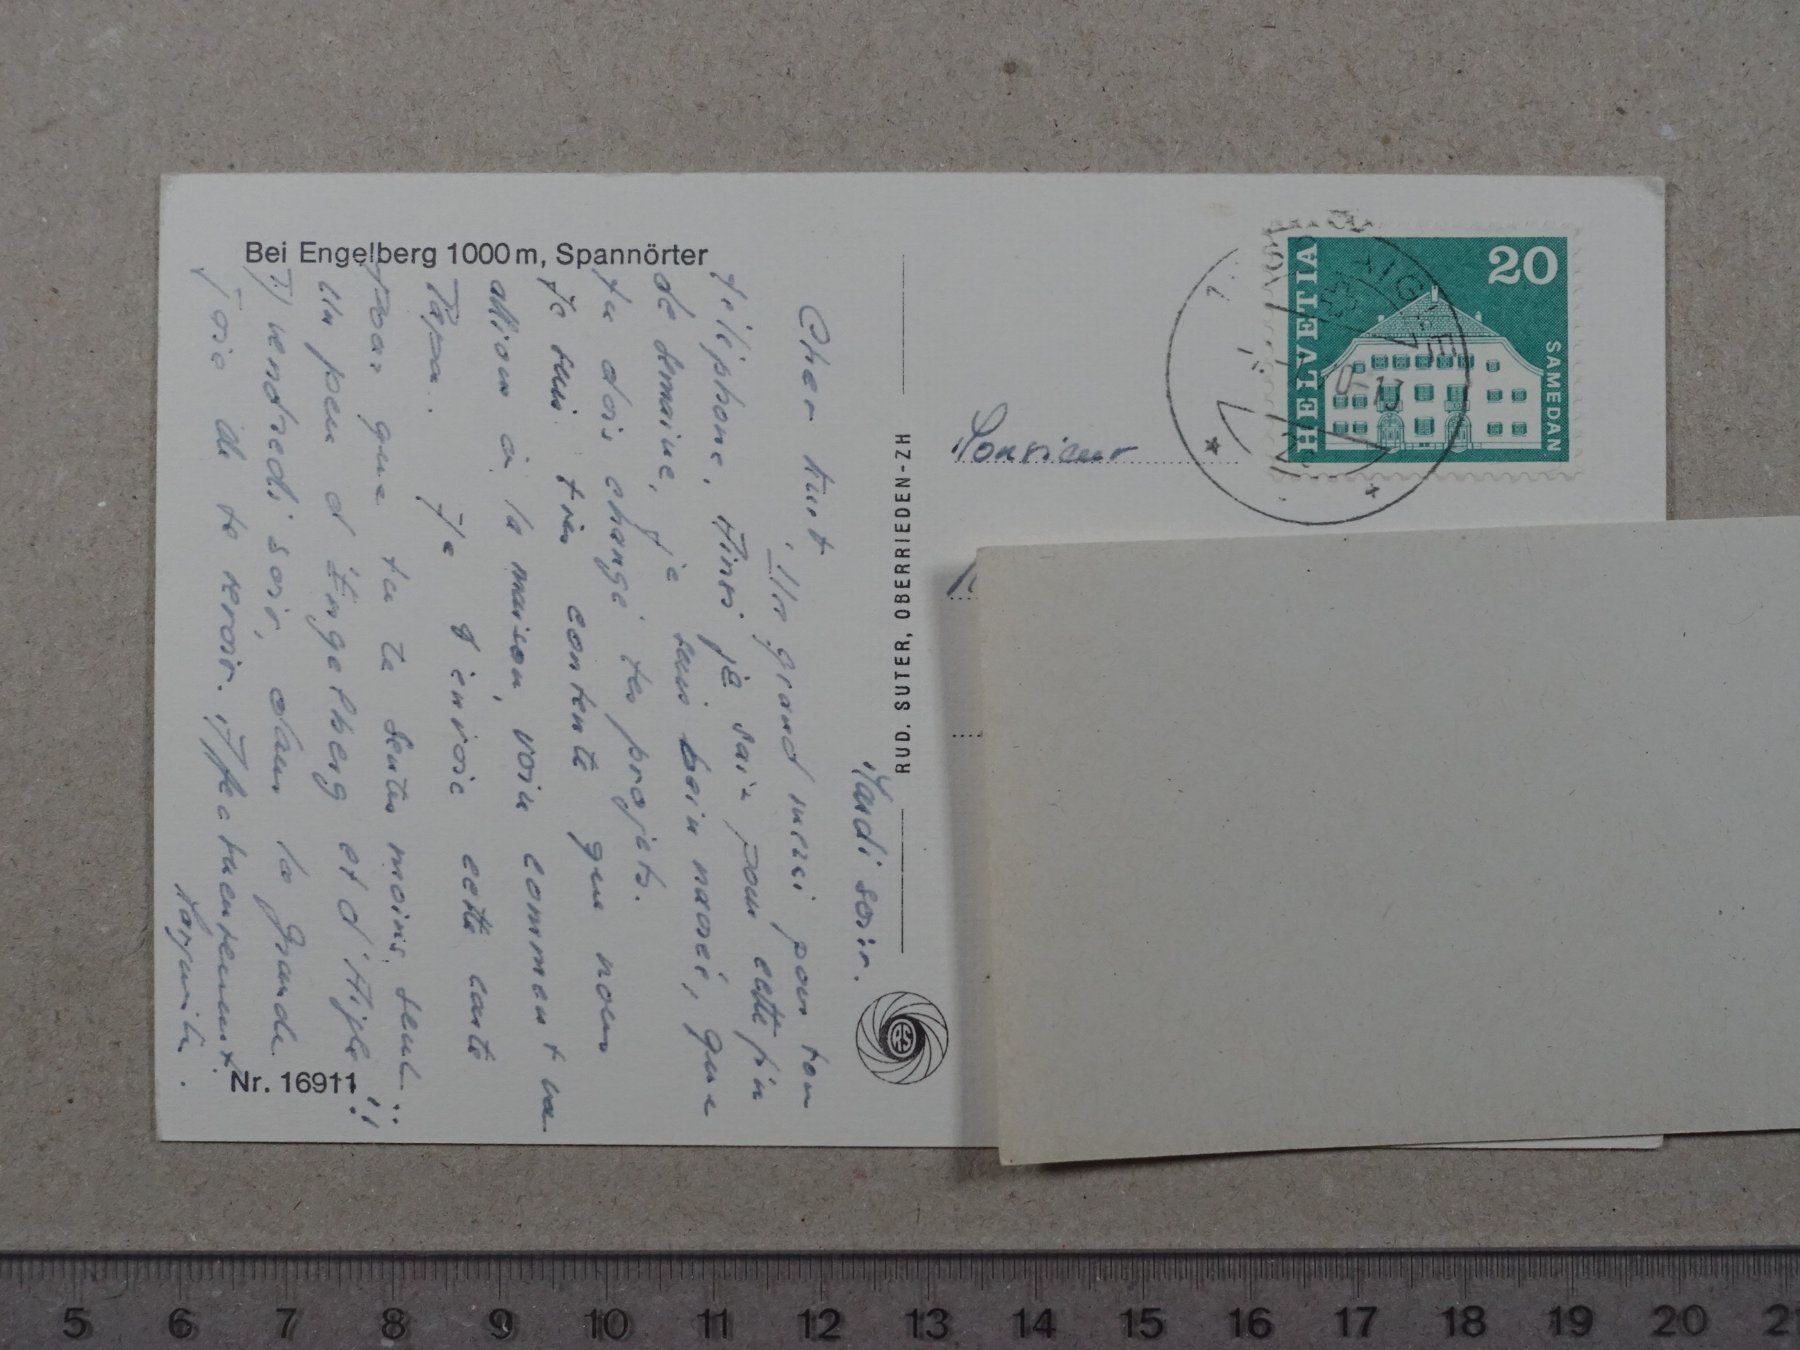 Bei Engelberg 1000 m, Spannörter
Mardi soir.
Cher Kurt
Un grand merci pour ton
téléphone. Ainsi je sais pour cette fin
de semaine, je suis bein navrée, que
tu dois changé tes projets.
Je suis très contente que nous
allions à la maison, voir comment va
Papa. Je t'envoie cette carte
pour que tu te sentes moins seul..
un peu d'Engelberg et d'Aigle!!
A vendredi soir, dans la grande
joie de te revoir. Affectueusement
Nr. 16911
RUD. SUTER, OBERRIEDEN-ZH
RS
Monsieur
HELVETIA
20
SAMEDAN
AIGLE